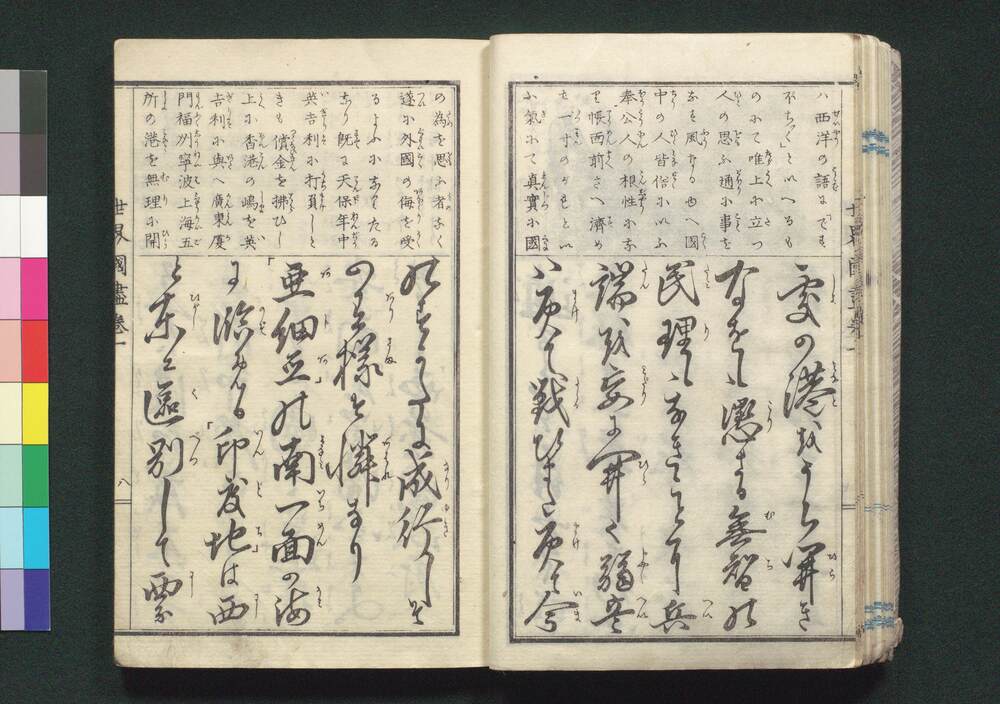 ハ西洋の語にでも
不ちといへるも
のにて唯上に立つ
人の思ふ通に事を
なす風なるゆへ國
中の人皆俗にいふ
奉公人の根性にな
り帳面前さへ濟め
ば一寸のがれとい
ふ氣にて真實に國
處の港をうち開き
なをも懲ざる無智の
民理もなきことに兵
端を妄に開く弱兵
ハ負て戦ひまた負て今
の為を思ふ者なく
遂に外國の侮を受
るよふになりたる
なり既に天保年中
英吉利に打負しと
きも償金を拂ひし
上に香港の嶋を英
吉利に與へ廣東厦
門福州寧波上海五
所の港を無理に開
のすがたに成行しそ
の有様ぞ憐なり
「亜細亜」の南一面の海
に臨める「印度地」は西
と東に區別して
世界國盡卷一
八